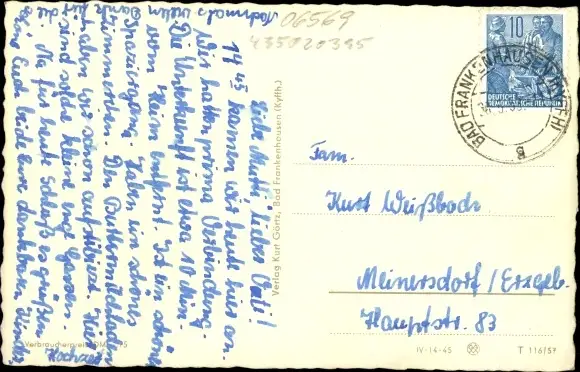 Nochmals vielen Dank für
06569
435020395
Liebe Mutti, lieber Vati!
14⁴⁵ kamen wir heute hier an.
Wir hatten prima Verbindung.
Die Unterkunft ist etwa 10 Min.
vom Heim entfernt. Ist ein schöner
Spaziergang. Haben ein schönes
Zimmerchen. Den Buttermilchbar
haben wir schon ausprobiert. Hier
sind solche kleine enge Gassen.
Na für heute Schluß es grüßen
Euch beide Eure dankbaren Kinder
die
Hochzeit
Verbraucherpreis DM
Verlag Kurt Görtz, Bad Frankenhausen (Kyffh.)
10
DEUTSCHE
DEMOKRATISCHE REPUBLIK
BAD FRANKENHAUSEN (KYFFH)
a
Fam.
Kurt Weißbach
Meinersdorf/Erzgeb.
Hauptstr. 83
IV-14-45
T 116/57